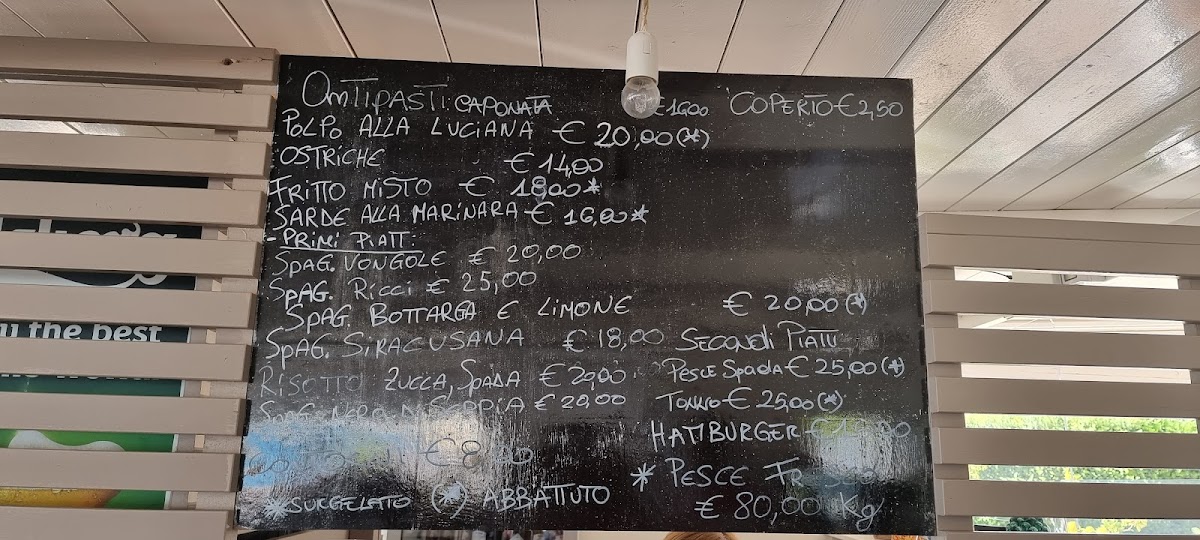 Antipasti: CAPONATA €16,00 COPERTO € 2,50
POLPO ALLA LUCIANA € 20,00 (*)
OSTRICHE € 14,00
FRITTO MISTO € 18,00 *
SARDE ALLA MARINARA € 16,00 *
- PRIMI PIATTI:
SPAG. VONGOLE € 20,00
SPAG. RICCI € 25,00
SPAG. BOTTARGA E LIMONE € 20,00 (*)
SPAG. SIRACUSANA € 18,00
RISOTTO ZUCCA, SPADA € 20,00
SPAG. NERO DI SEPPIA € 20,00
€ 8,00
*SURGELATO (*) ABBATTUTO
SECONDI PIATTI
PESCE SPADA € 25,00 (*)
TONNO € 25,00 (*)
HAMBURGER €
* PESCE FRESCO
€ 80,00 Kg
the best